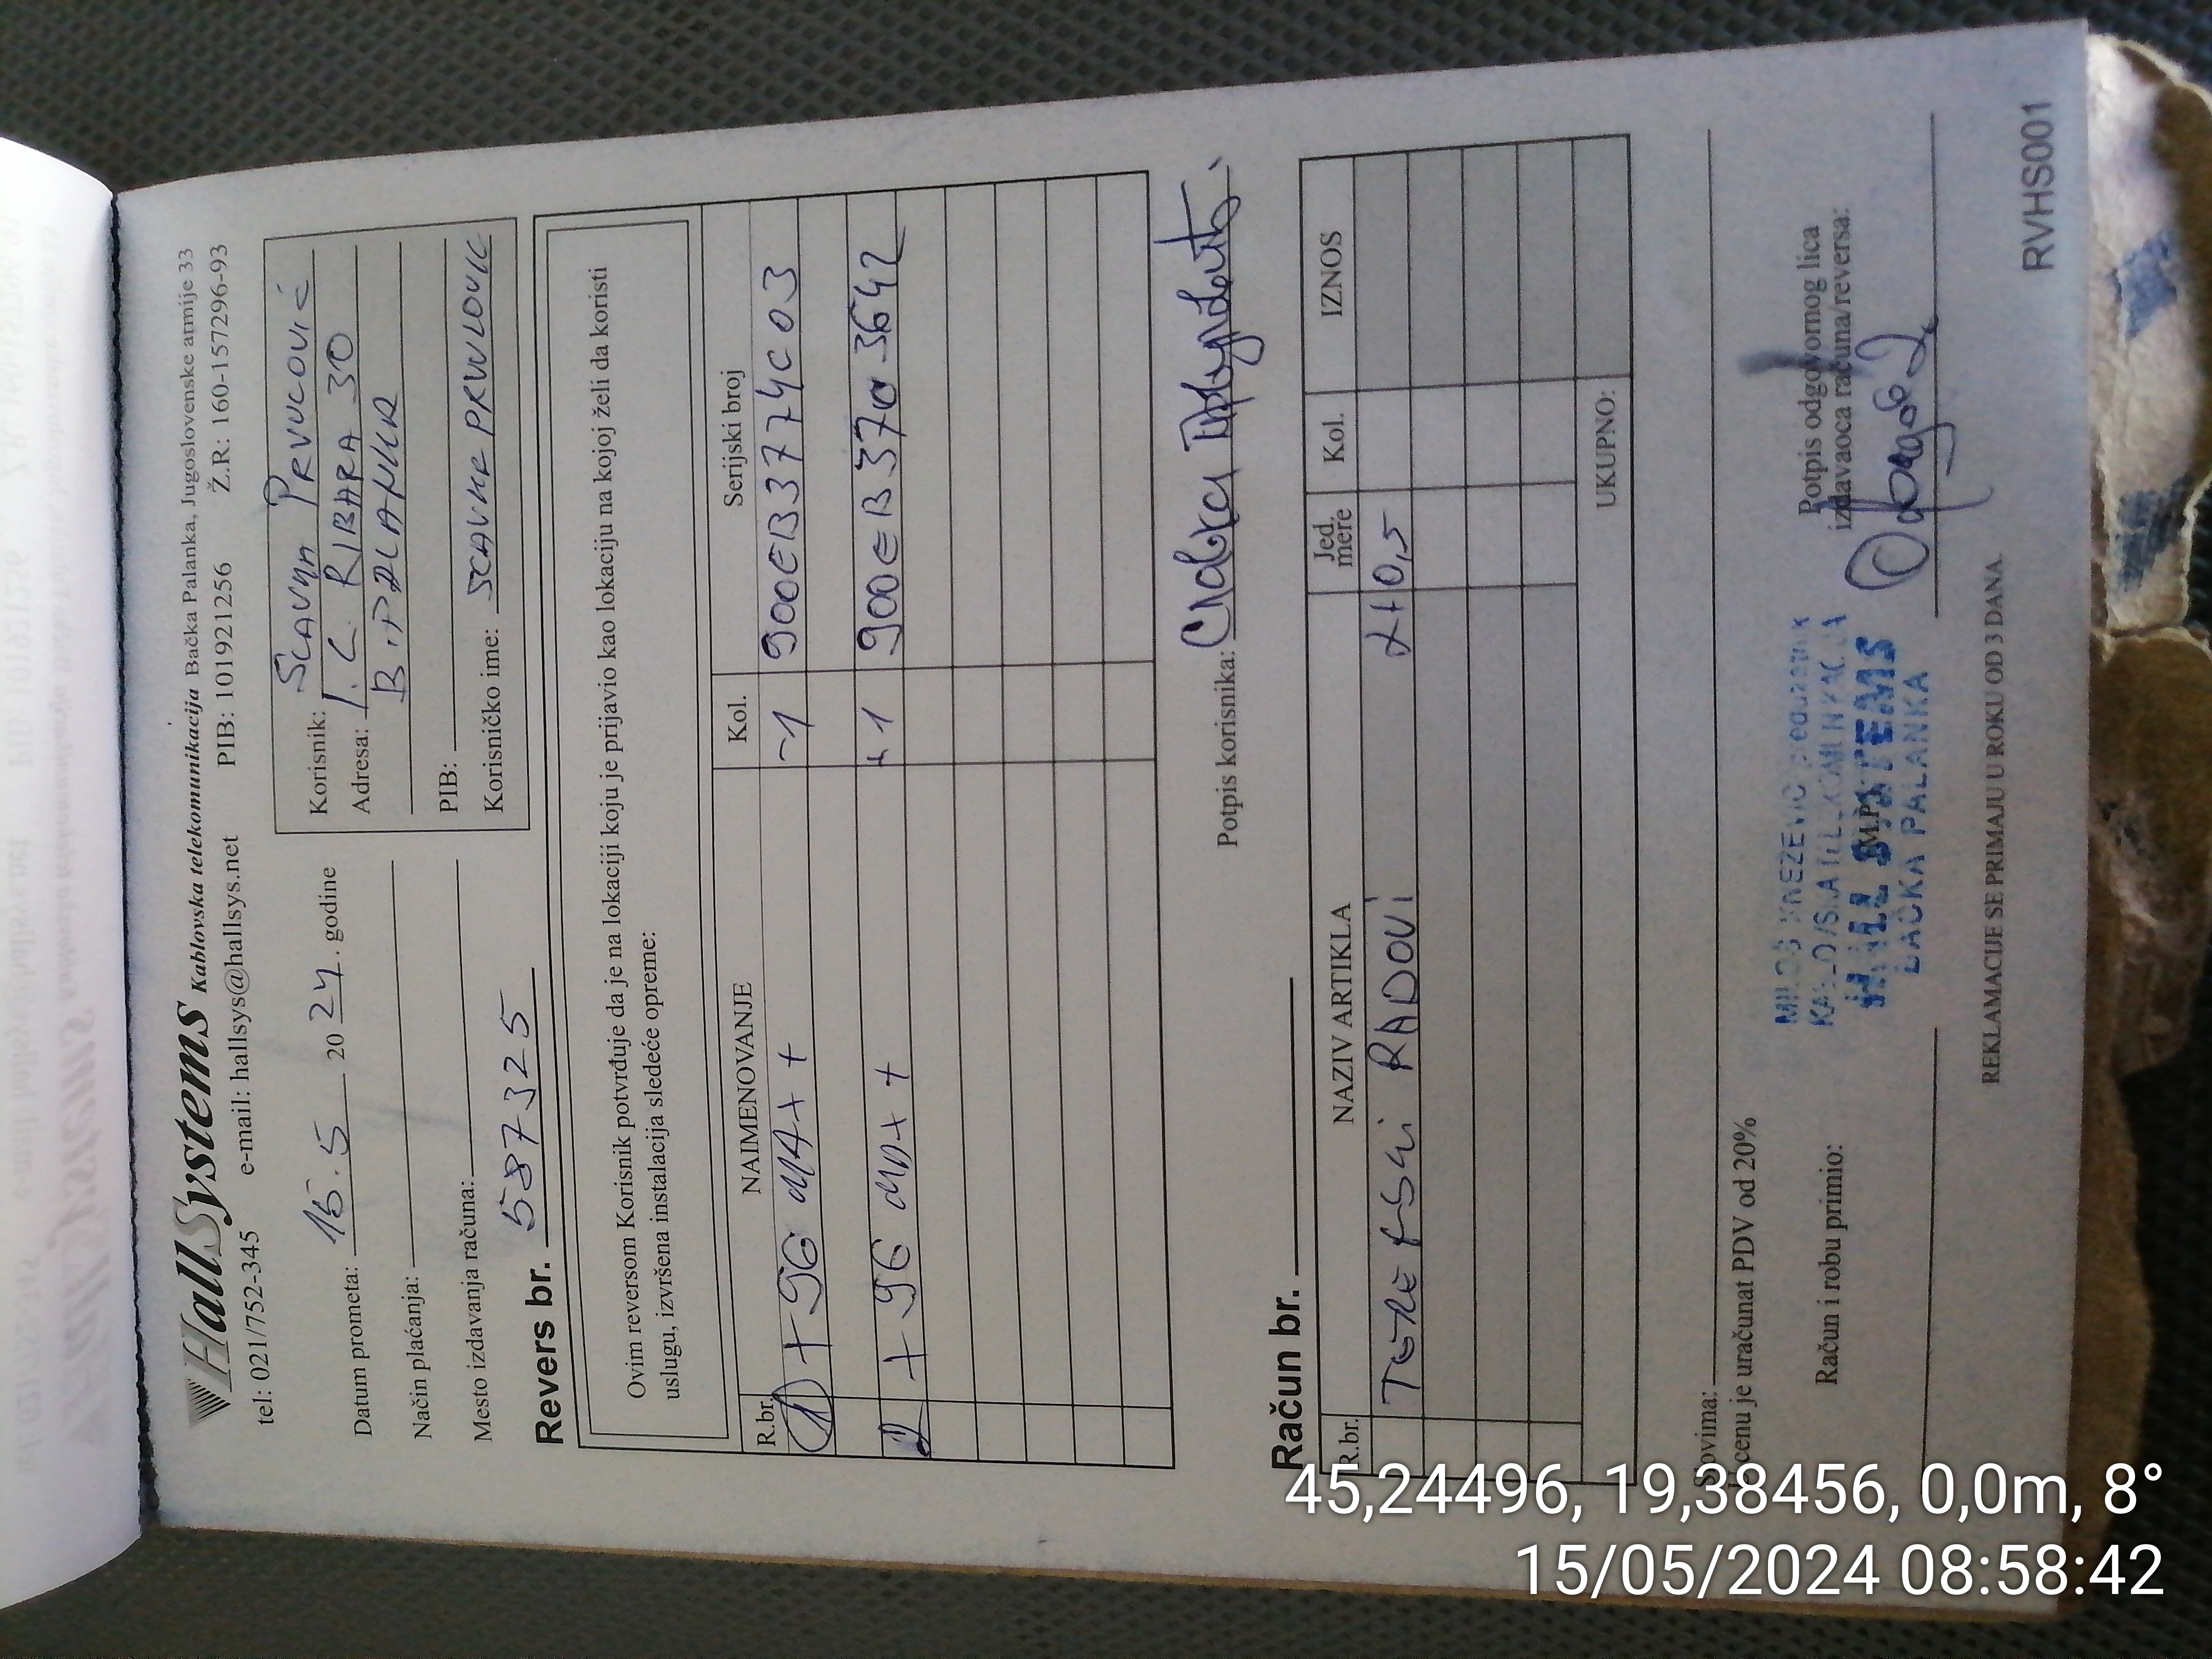 HallSystems Kablovska telekomunikacija Bačka Palanka, Jugoslovenske armije 33
tel: 021/752-345 e-mail: hallsys@hallsys.net PIB: 101921256 Ž.R: 160-157296-93
Datum prometa: 15.5 2024. godine
Način plaćanja:
Mesto izdavanja računa:
Korisnik: PRVULOVIĆ
Adresa: I. L. RIBARA 30
B. PALANKA
PIB:
Korisničko ime:
Revers br. 587325
Ovim reversom Korisnik potvrđuje da je na lokaciji koju je prijavio kao lokaciju na kojoj želi da koristi
uslugu, izvršena instalacija sledeće opreme:
R.br. NAIMENOVANJE Kol. Serijski broj
1 -1 900EB3774C03
2 +1 900EB3703642
Potpis korisnika:
Račun br.
R.br. NAZIV ARTIKLA Jed. mere Kol. IZNOS
RADOVI
UKUPNO:
Slovima:
U cenu je uračunat PDV od 20%
Račun i robu primio:
M.P.
Potpis odgovornog lica
izdavaoca računa/reversa:
MILOŠ KNEŽEVIĆ preduzetnik
KABLOVSKA TELEKOMUNIKACIJA
HALL SYSTEMS
BAČKA PALANKA
REKLAMACIJE SE PRIMAJU U ROKU OD 3 DANA.
RVHS001
45,24496, 19,38456, 0,0m, 8°
15/05/2024 08:58:42